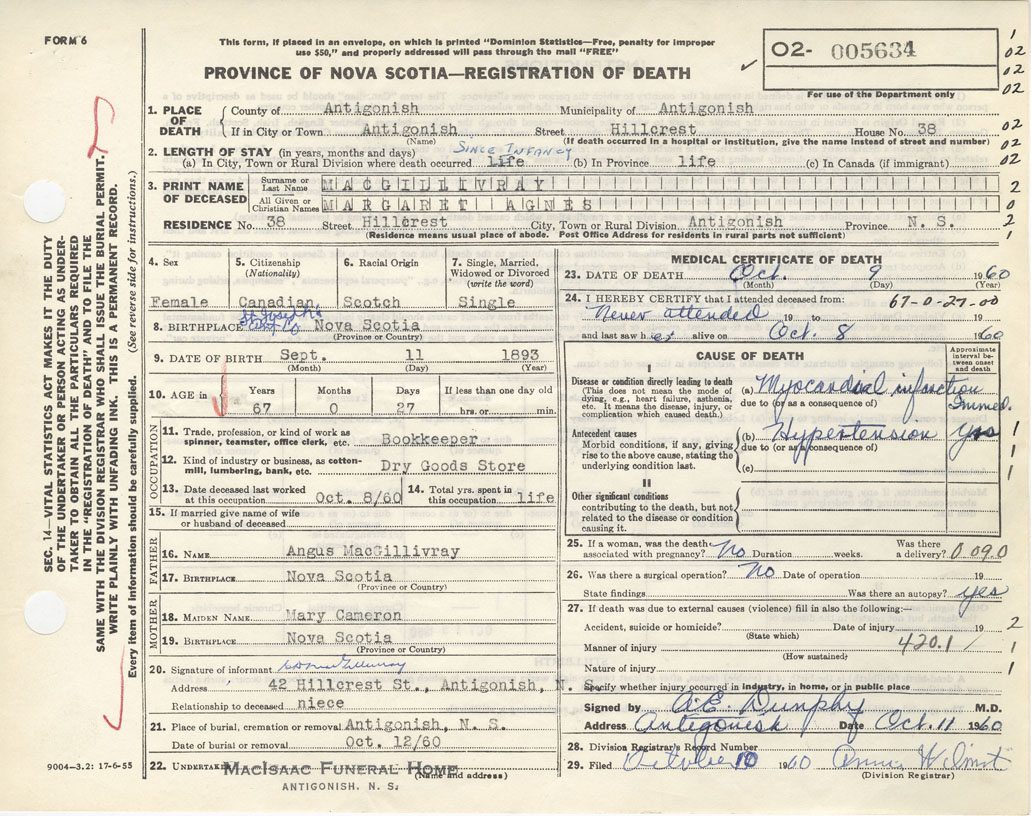 FORM 6
This form, if placed in an envelope, on which is printed "Dominion Statistics—Free, penalty for improper
use $50," and properly addressed will pass through the mail "FREE"
PROVINCE OF NOVA SCOTIA—REGISTRATION OF DEATH
02- 005634
For use of the Department only
1
02
02
02
1. PLACE OF DEATH
County of Antigonish Municipality of Antigonish
If in City or Town Antigonish Street Hillcrest House No. 38 02
(Name) (If death occurred in a hospital or institution, give the name instead of street and number)
2. LENGTH OF STAY (in years, months and days) SINCE INFANCY 02
(a) In City, Town or Rural Division where death occurred life (b) In Province life (c) In Canada (if immigrant) 02
3. PRINT NAME OF DECEASED
Surname or Last Name MACGILLIVRAY 2
All Given or Christian Names MARGARET AGNES 0
RESIDENCE No. 38 Street Hillcrest City, Town or Rural Division Antigonish Province N. S. 2
(Residence means usual place of abode. Post Office Address for residents in rural parts not sufficient) 1
4. Sex Female
5. Citizenship (Nationality) Canadian
6. Racial Origin Scotch
7. Single, Married, Widowed or Divorced (write the word) Single
8. BIRTHPLACE St Joseph's Nova Scotia
(Province or Country)
9. DATE OF BIRTH Sept. 11 1893
(Month) (Day) (Year)
10. AGE in Years Months Days If less than one day old
67 0 27 hrs. or min.
OCCUPATION
11. Trade, profession or kind of work as spinner, teamster, office clerk, etc. Bookkeeper
12. Kind of industry or business, as cotton-mill, lumbering, bank, etc. Dry Goods Store
13. Date deceased last worked at this occupation Oct. 8/60
14. Total yrs. spent in this occupation life
15. If married give name of wife or husband of deceased
FATHER
16. NAME Angus MacGillivray
17. BIRTHPLACE Nova Scotia
(Province or Country)
MOTHER
18. MAIDEN NAME Mary Cameron
19. BIRTHPLACE Nova Scotia
(Province or Country)
20. Signature of informant
Address 42 Hillcrest St., Antigonish, N. S.
Relationship to deceased niece
21. Place of burial, cremation or removal Antigonish, N. S.
Date of burial or removal Oct. 12/60
22. UNDERTAKER MACISAAC FUNERAL HOME
(Name and address)
ANTIGONISH, N. S.
MEDICAL CERTIFICATE OF DEATH
23. DATE OF DEATH Oct. 9 1960
(Month) (Day) (Year)
24. I HEREBY CERTIFY that I attended deceased from: 67-0-27-00
Never attended 19 to 19
and last saw her alive on Oct. 8 1960
CAUSE OF DEATH
Approximate interval between onset and death
I
Disease or condition directly leading to death
(This does not mean the mode of dying, e.g., heart failure, asthenia, etc. It means the disease, injury, or complication which caused death.)
(a) Myocardial infarction Immed.
due to (or as a consequence of)
Antecedent causes
Morbid conditions, if any, giving rise to the above cause, stating the underlying condition last.
(b) Hypertension yrs 1
due to (or as a consequence of) 1
(c) 1
II
Other significant conditions
contributing to the death, but not related to the disease or condition causing it.
25. If a woman, was the death associated with pregnancy? No Duration weeks. Was there a delivery? 0 090
26. Was there a surgical operation? No Date of operation 19
State findings Was there an autopsy? yes
27. If death was due to external causes (violence) fill in also the following:—
Accident, suicide or homicide? Date of injury 19 2
(State which)
Manner of injury 420.1 1
(How sustained)
Nature of injury 1
Specify whether injury occurred in industry, in home, or in public place
Signed by A.E. Dunphy M.D.
Address Antigonish Date Oct. 11 1960
28. Division Registrar's Record Number
29. Filed October 10 1960
(Division Registrar)
SEC. 14—VITAL STATISTICS ACT MAKES IT THE DUTY
OF THE UNDERTAKER OR PERSON ACTING AS UNDER-
TAKER TO OBTAIN ALL THE PARTICULARS REQUIRED
IN THE "REGISTRATION OF DEATH" AND TO FILE THE
SAME WITH THE DIVISION REGISTRAR WHO SHALL ISSUE THE BURIAL PERMIT.
WRITE PLAINLY WITH UNFADING INK. THIS IS A PERMANENT RECORD.
Every item of information should be carefully supplied. (See reverse side for instructions.)
9004-3.2: 17-6-55